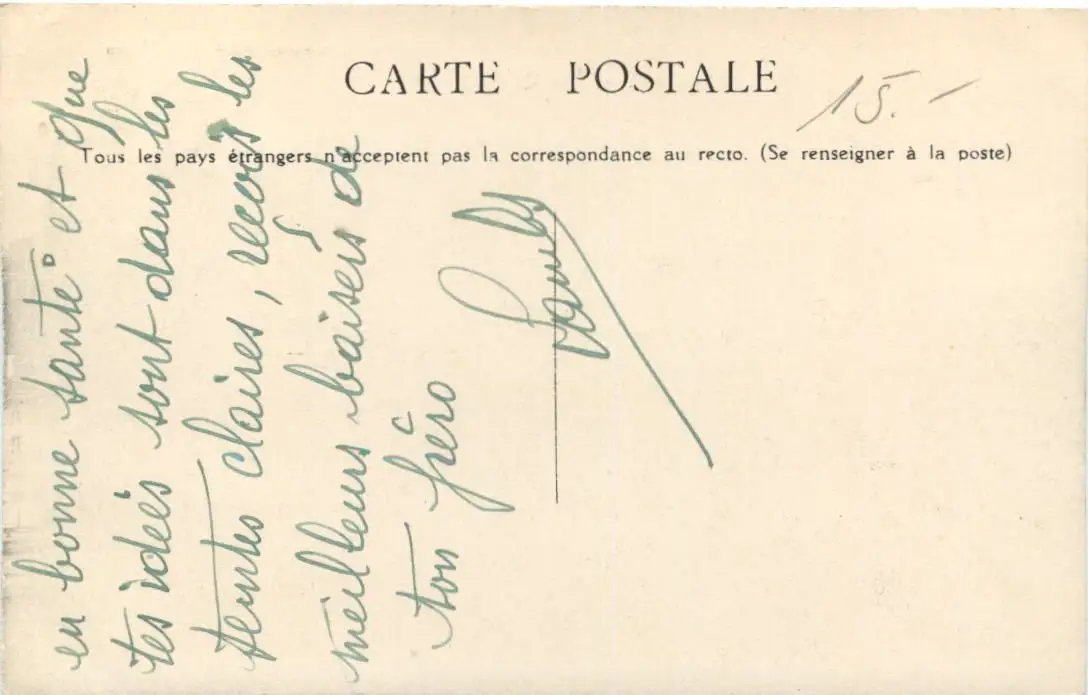 CARTE POSTALE
15.-
Tous les pays étrangers n'acceptent pas la correspondance au recto. (Se renseigner à la poste)
en bonne santé et que
tes idées sont dans les
teintes claires, reçois les
meilleurs baisers de
ton frèro